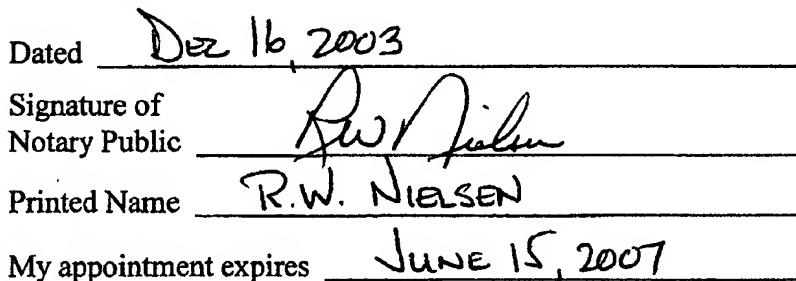 Dated Dez 16, 2003
Signature of
Notary Public RW Nielsen
Printed Name R.W. NIELSEN
My appointment expires JUNE 15, 2007